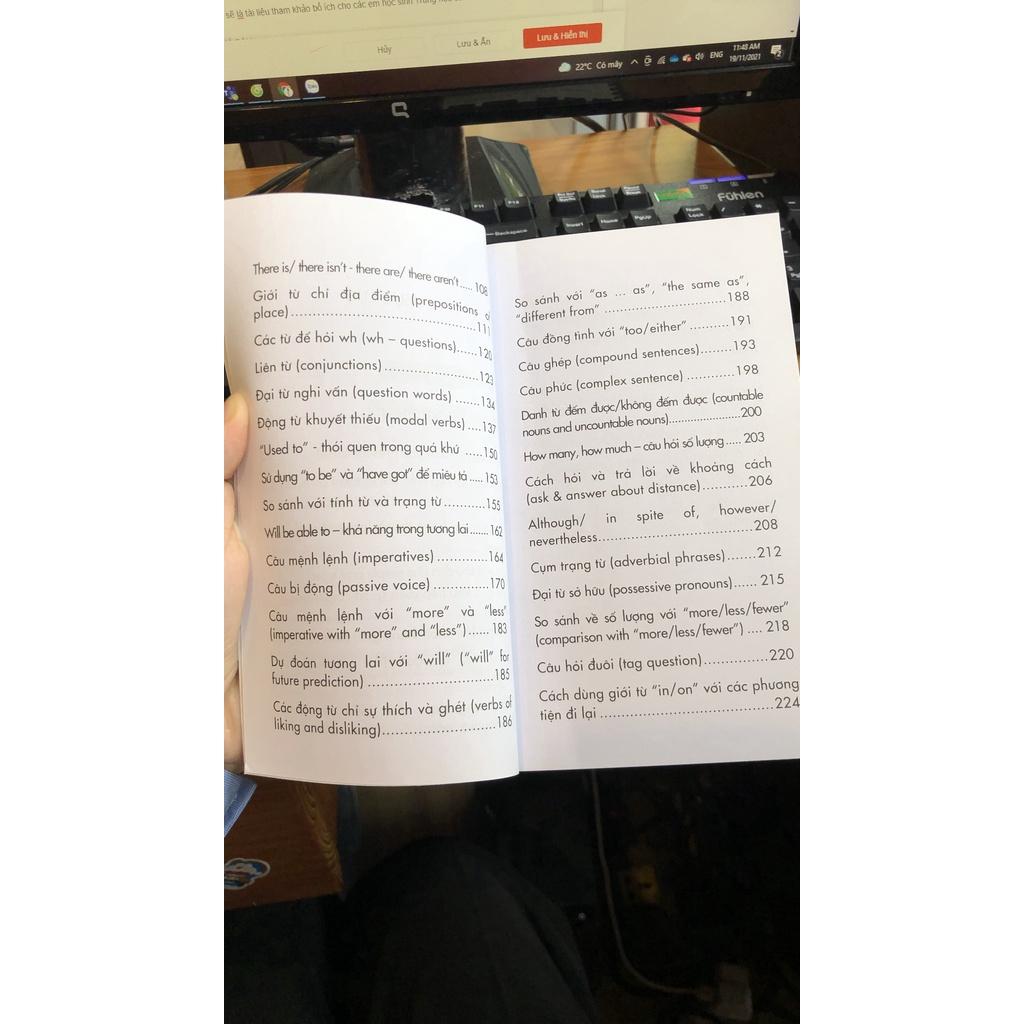 sẽ là tài liệu tham khảo bổ ích cho các em học sinh Trung học
Hủy
Lưu & Ẩn
Lưu & Hiển thị
22°C Có mây
ENG
11:48 AM
19/11/2021
Fühlen
F11
F12
Backspace
Insert
Home
PgUp
Num
Lock
There is/ there isn't - there are/ there aren't ..... 108
Giới từ chỉ địa điểm (prepositions
place) .......... 111
Các từ để hỏi wh (wh – questions) ...... 120
Liên từ (conjunctions) .......... 123
Đại từ nghi vấn (question words) ....... 134
Động từ khuyết thiếu (modal verbs) .... 137
"Used to" - thói quen trong quá khứ ..... 150
Sử dụng "to be" và "have got" để miêu tả ..... 153
So sánh với tính từ và trạng từ .......... 155
Will be able to – khả năng trong tương lai ....... 162
Câu mệnh lệnh (imperatives) ............. 164
Câu bị động (passive voice) .............. 170
Câu mệnh lệnh với "more" và "less"
(imperative with "more" and "less") ...... 183
Dự đoán tương lai với "will" ("will" for
future prediction) .......... 185
Các động từ chỉ sự thích và ghét (verbs of
liking and disliking) .......... 186
So sánh với "as ... as", "the same as",
"different from" .......... 188
Câu đồng tình với "too/either" .......... 191
Câu ghép (compound sentences) ........ 193
Câu phức (complex sentence) ............ 198
Danh từ đếm được/không đếm được (countable
nouns and uncountable nouns) .......... 200
How many, how much – câu hỏi số lượng ..... 203
Cách hỏi và trả lời về khoảng cách
(ask & answer about distance) ........... 206
Although/ in spite of, however/
nevertheless .......... 208
Cụm trạng từ (adverbial phrases) ....... 212
Đại từ sở hữu (possessive pronouns) ...... 215
So sánh về số lượng với "more/less/fewer"
(comparison with "more/less/fewer") .... 218
Câu hỏi đuôi (tag question) ............... 220
Cách dùng giới từ "in/on" với các phương
tiện đi lại .......... 224